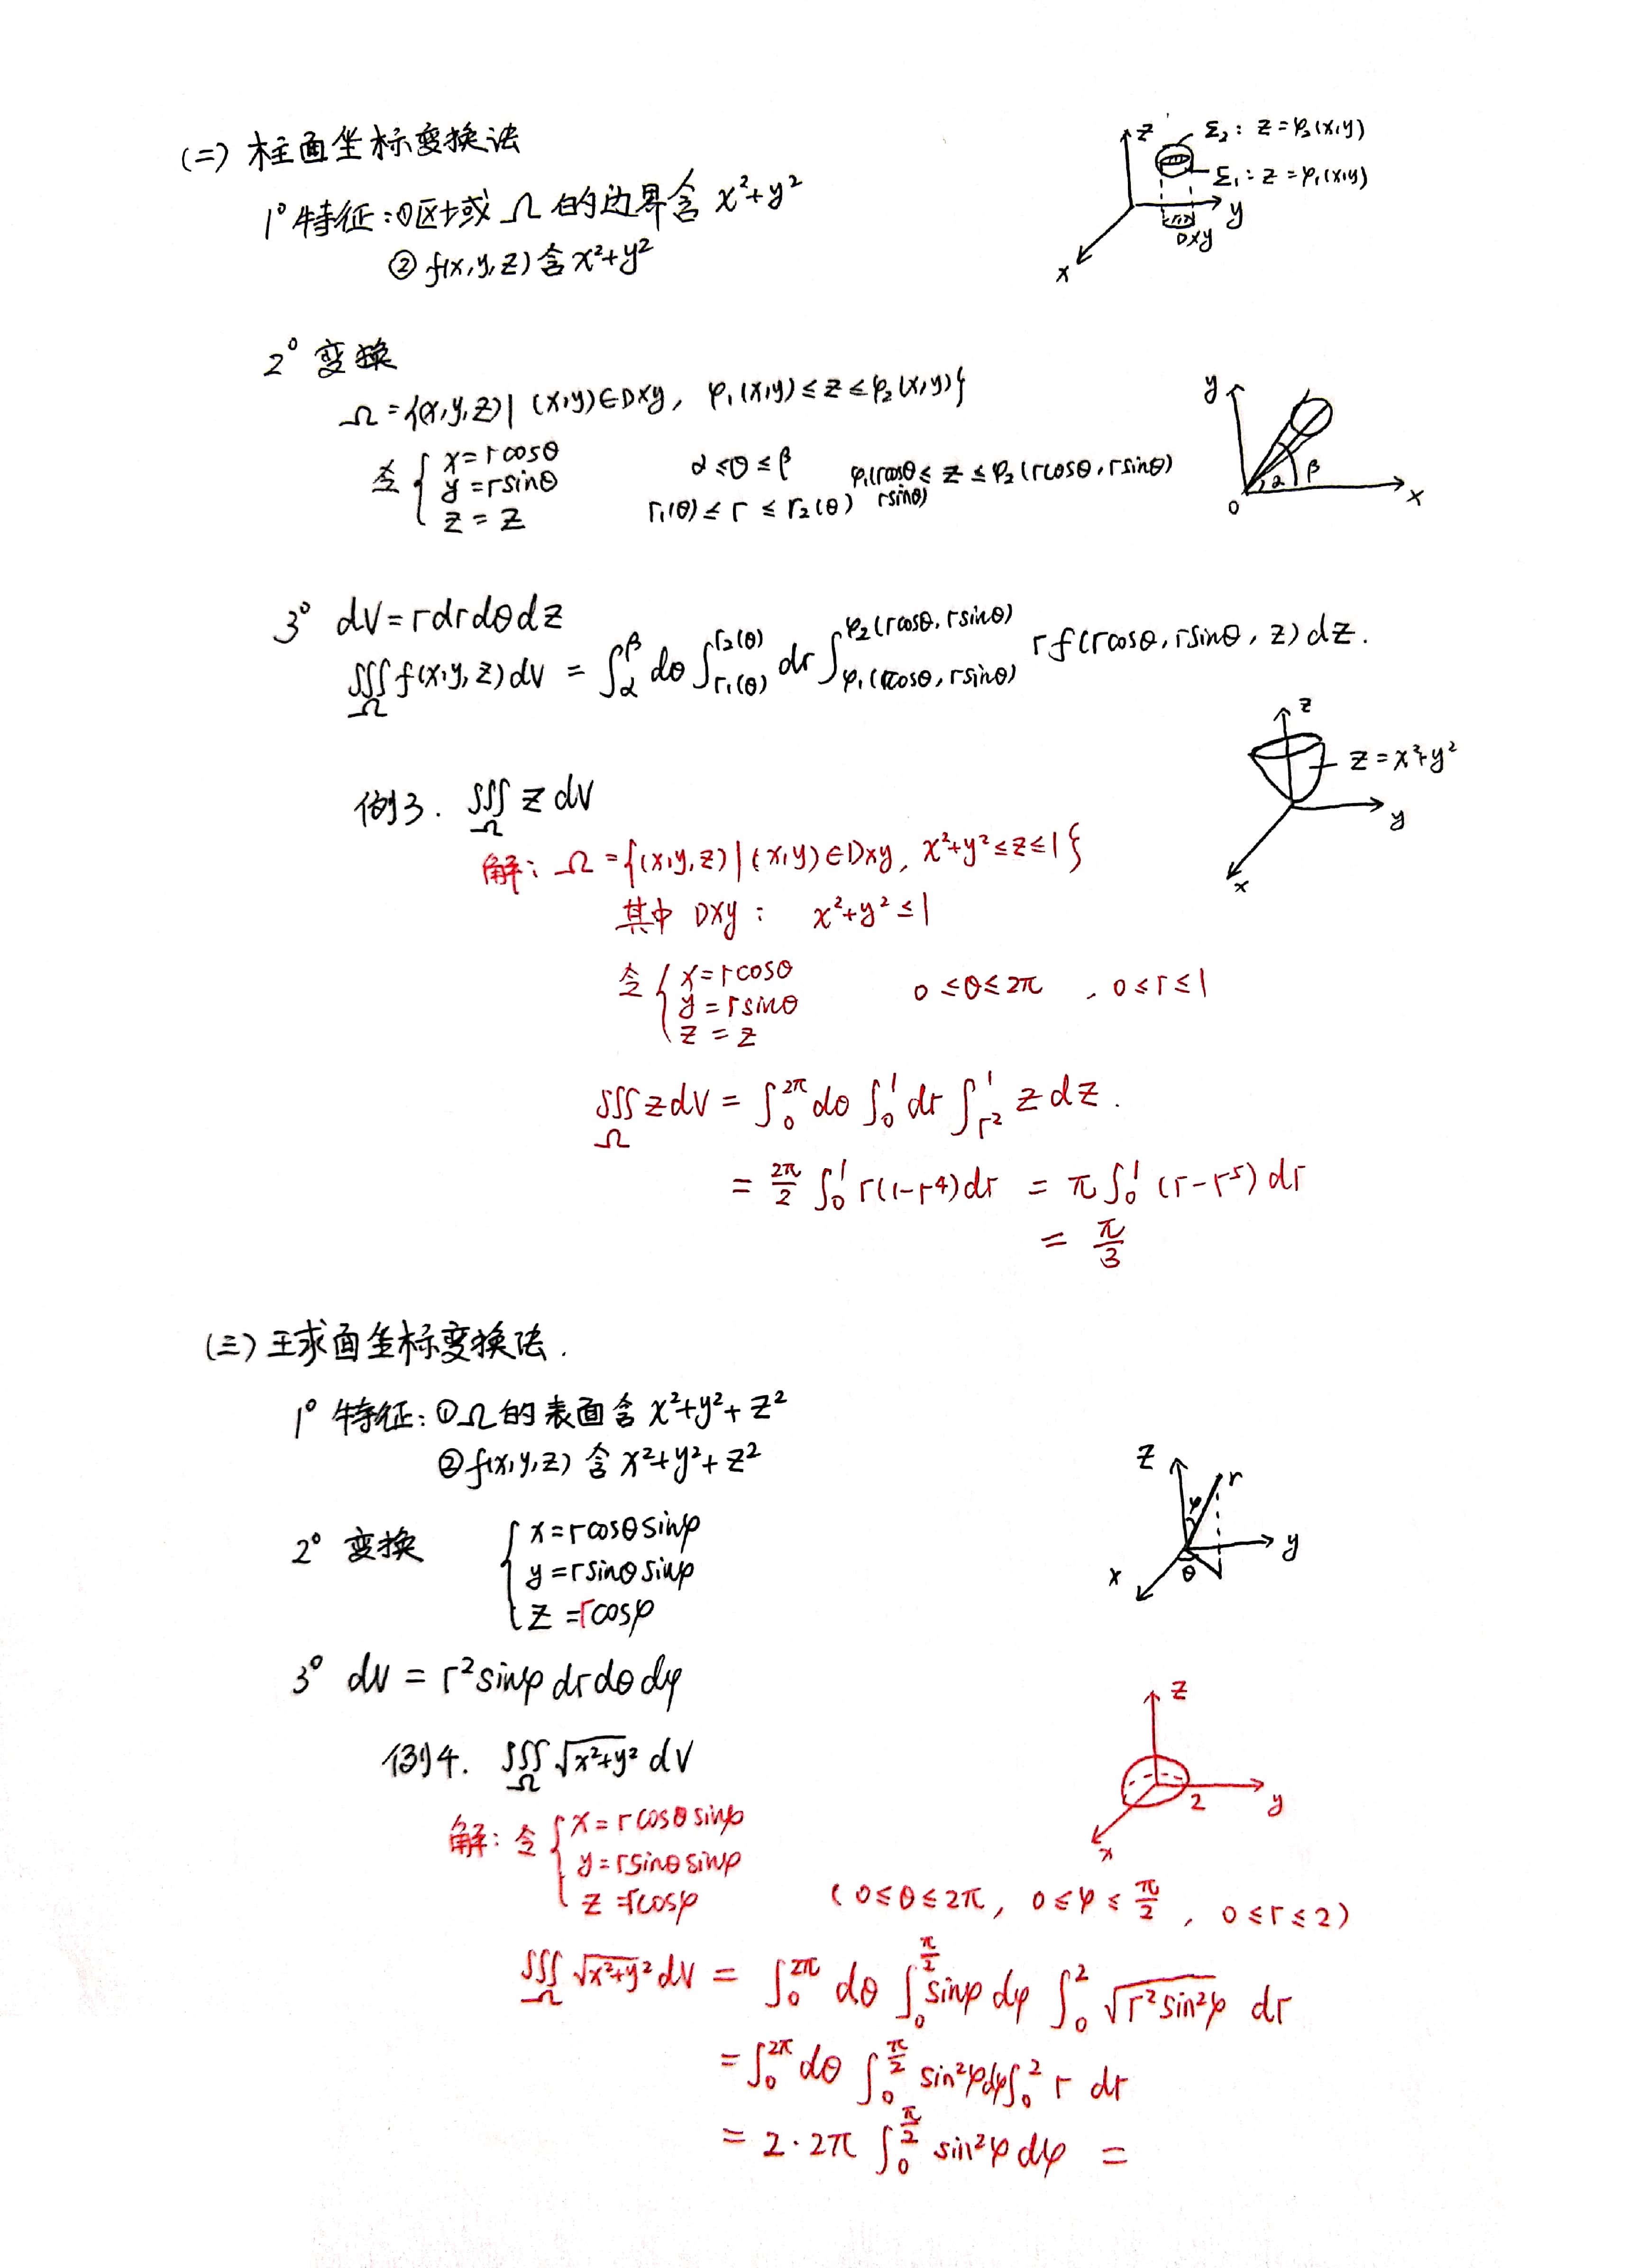 (二) 柱面坐标变换法
z
Σ₂: z=φ₂(x,y)
Σ₁: z=φ₁(x,y)
y
Dxy
x
1° 特征: ①区域 Ω 的边界含 x²+y²
② f(x,y,z) 含 x²+y²
2° 变换
Ω={(x,y,z)| (x,y)∈Dxy, φ₁(x,y)≤z≤φ₂(x,y)}
令 { x=rcosθ
y=rsinθ
z=z
α≤θ≤β
r₁(θ)≤r≤r₂(θ)
φ₁(rcosθ, rsinθ)≤z≤φ₂(rcosθ, rsinθ)
y
α β
0
x
3° dV=rdrdθdz
∭_Ω f(x,y,z)dV = ∫_α^β dθ ∫_{r₁(θ)}^{r₂(θ)} dr ∫_{φ₁(rcosθ, rsinθ)}^{φ₂(rcosθ, rsinθ)} rf(rcosθ, rsinθ, z)dz.
z
z=x²+y²
y
x
例3. ∭_Ω z dV
解: Ω={(x,y,z)|(x,y)∈Dxy, x²+y²≤z≤1}
其中 Dxy: x²+y²≤1
令 { x=rcosθ
y=rsinθ
z=z
0≤θ≤2π , 0≤r≤1
∭_Ω zdV = ∫_0^{2π} dθ ∫_0^1 dr ∫_{r²}^1 z dz.
= 2π/2 ∫_0^1 r(1-r⁴)dr = π∫_0^1 (r-r⁵)dr
= π/3
(三) 球面坐标变换法.
1° 特征: ①Ω的表面含 x²+y²+z²
②f(x,y,z) 含 x²+y²+z²
2° 变换 { x=rcosθsinφ
y=rsinθsinφ
z=rcosφ
z
r
φ
y
θ
x
3° dV = r²sinφdrdθdφ
例4. ∭_Ω √(x²+y²) dV
z
2
y
x
解: 令 { x=rcosθsinφ
y=rsinθsinφ
z=rcosφ
(0≤θ≤2π, 0≤φ≤π/2, 0≤r≤2)
∭_Ω √(x²+y²)dV = ∫_0^{2π} dθ ∫_0^{π/2} sinφ dφ ∫_0^2 √(r²sin²φ) dr
= ∫_0^{2π} dθ ∫_0^{π/2} sin²φdφ∫_0^2 r dr
= 2·2π ∫_0^{π/2} sin²φdφ =